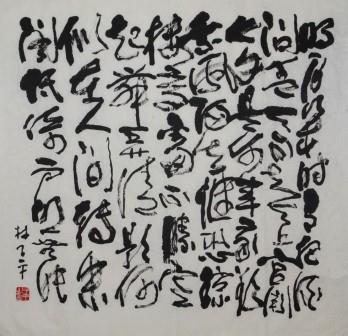 明月幾時有把酒
問青天不知天上宮闕
今夕是何年我欲
乘風歸去惟恐瓊
樓玉宇高處不勝寒
起舞弄清影何
似在人間轉朱
閣低綺戶照無眠